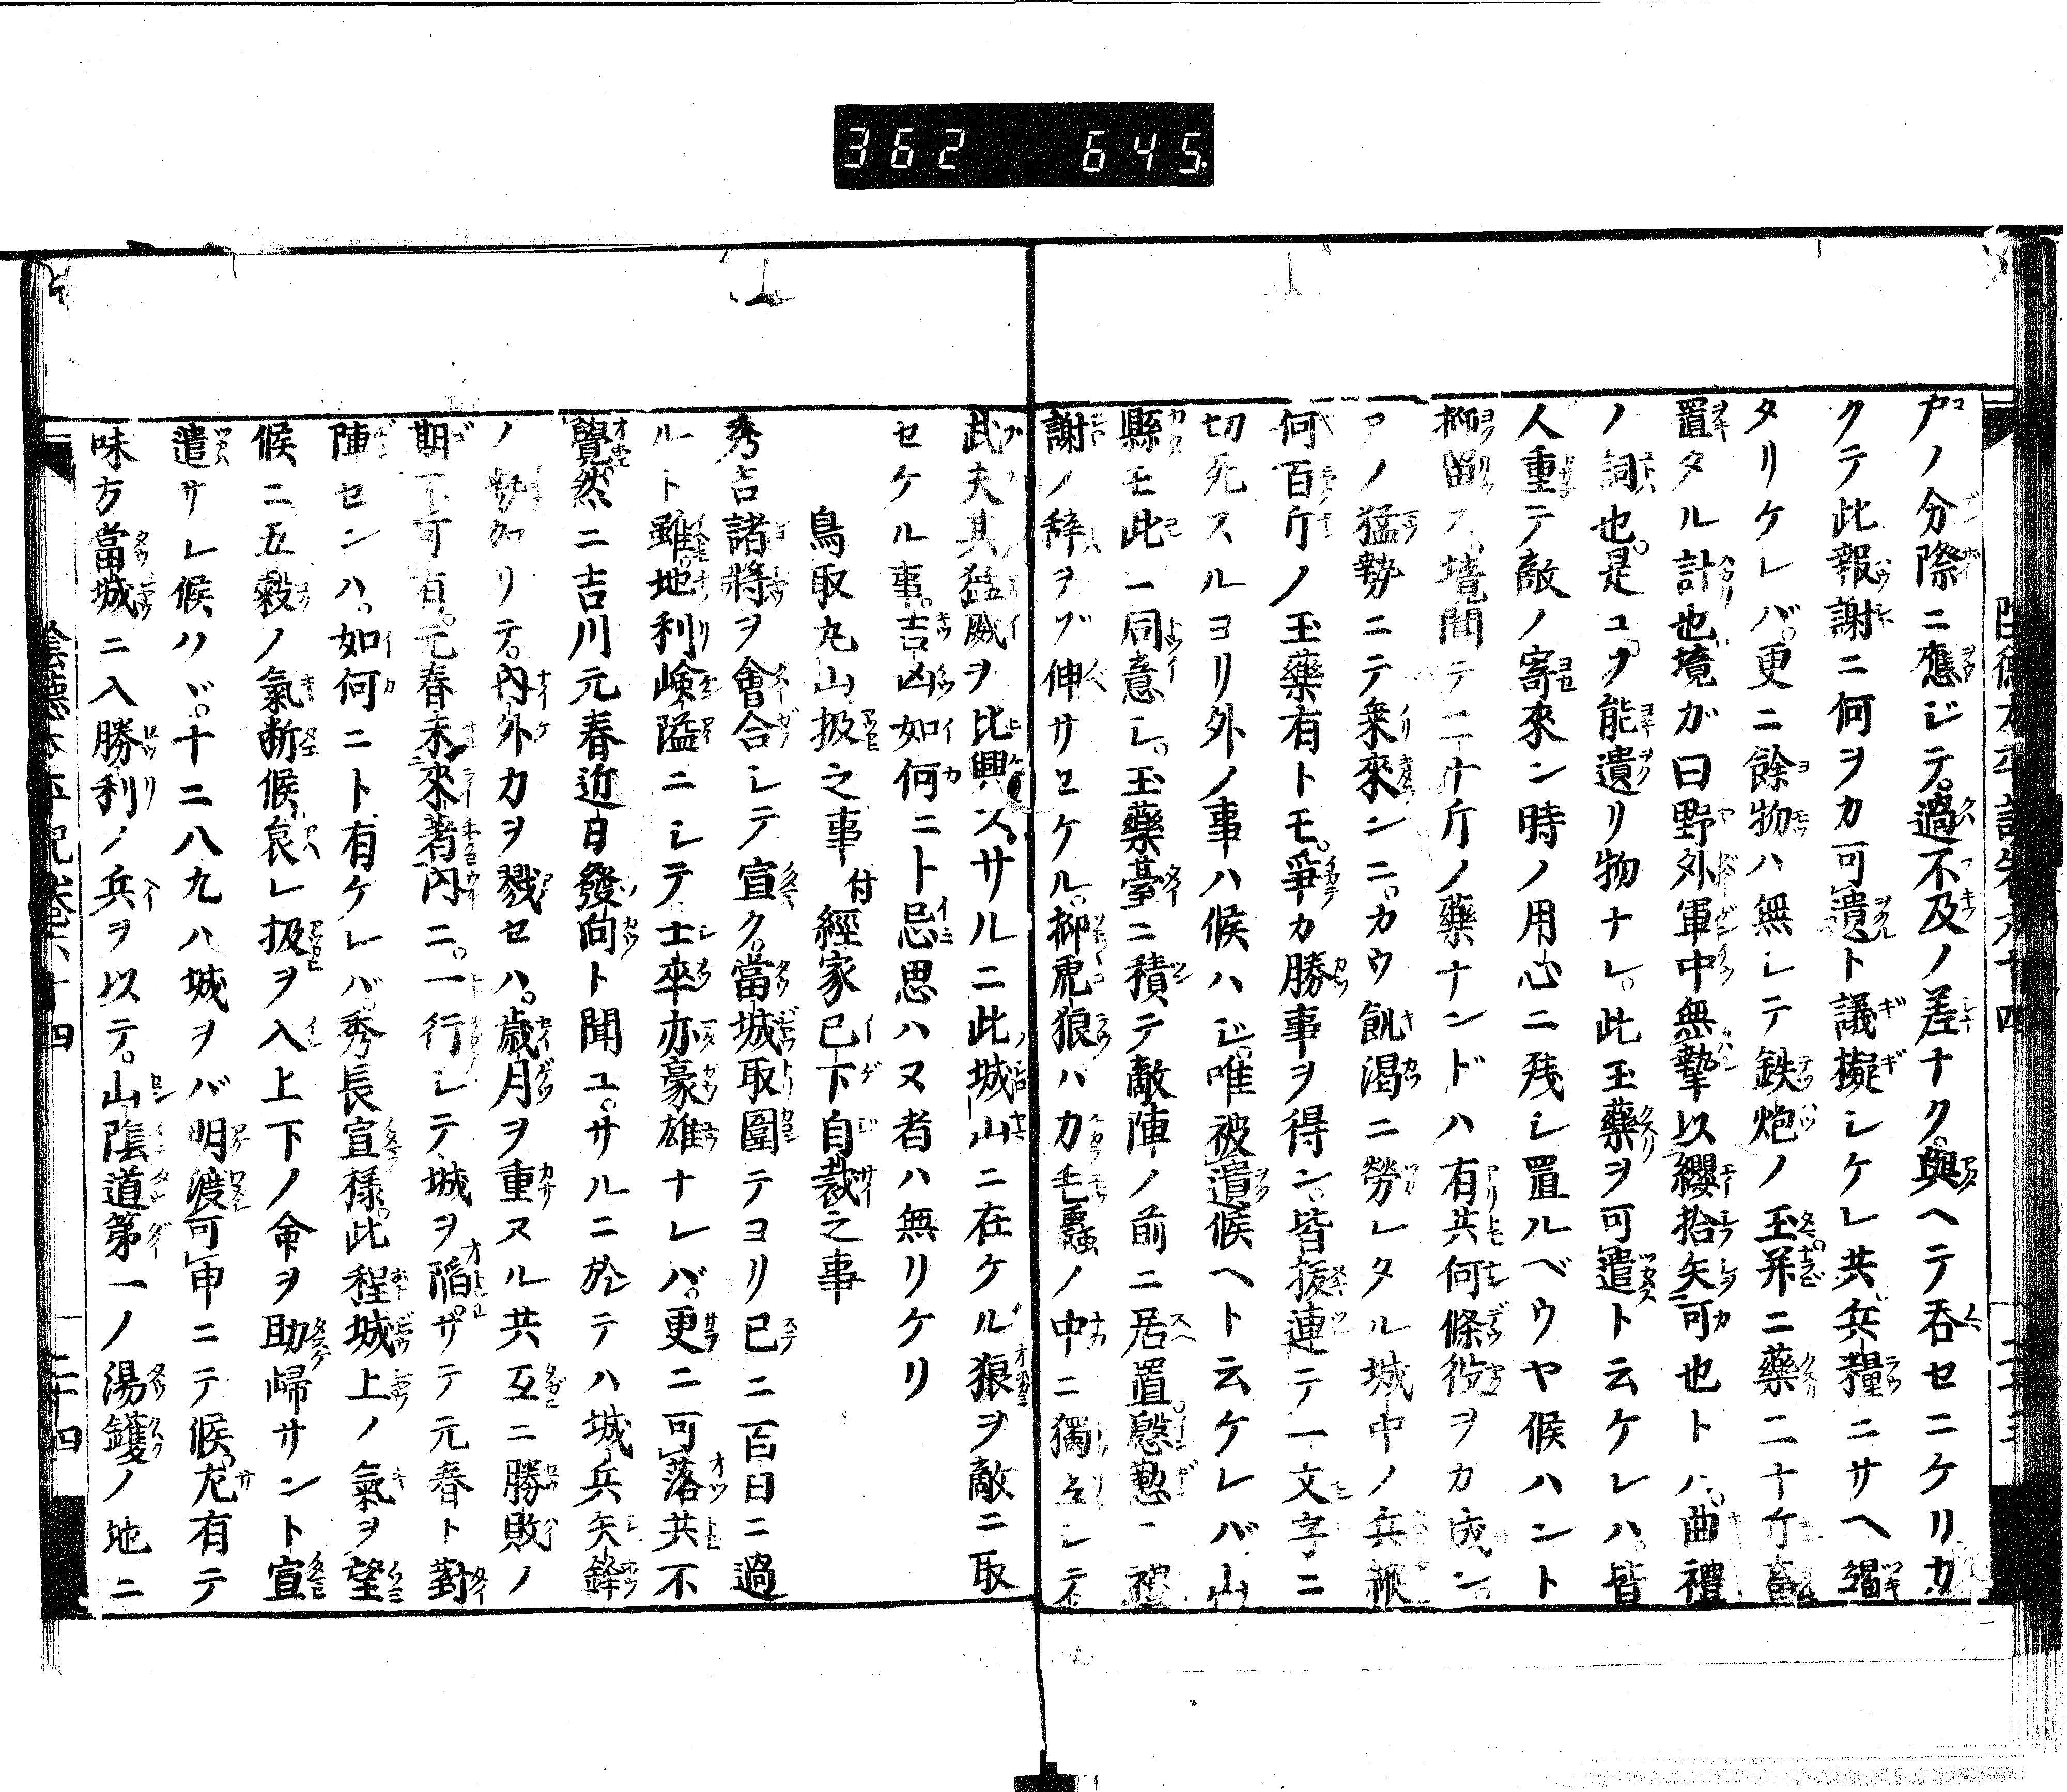 362 645.
戸ノ分際ニ應ジテ。過不及ノ差ナク。與ヘテ呑セニケリカ
クテ此報謝ニ何ヲカ可遺ト議擬シケレ共。兵糧ニサヘ竭
タリケレバ。更ニ餘物ハ無シテ鉄炮ノ玉并ニ藥二十斤畜
置タル計也。境ガ曰野外軍中無摯以纓拾矢可也トハ。曲禮
ノ詞也。是コソ能遺リ物ナレ。此玉藥ヲ可遣ト云ケレハ。皆
人重テ敵ノ寄來ン時ノ用心ニ残シ置ルベウヤ候ハント
抑留ス。境聞テ二十斤ノ藥ナンドハ有共何條役ヲカ成ン。
アノ猛勢ニテ乗來ンニ。カウ飢渇ニ勞レタル城中ノ兵
何百斤ノ玉藥有トモ。爭カ勝事ヲ得ン。皆抜連テ一文字ニ
切死スルヨリ外ノ事ハ候ハジ。唯被遺候ヘト云ケレバ山
縣モ此一同意シ。玉藥臺ニ積テ敵陣ノ前ニ居置。慇懃ニ
謝ノ辞ヲゾ伸サセケル。抑虎狼ハカ毛蟲ノ中ニ獨立シテ
武夫其猛威ヲ比興ス。サルニ此城山ニ在ケル狼ヲ敵ニ取
セケル事。吉凶如何ニト忌思ハヌ者ハ無リケリ
鳥取丸山扱之事付經家已下自裁之事
秀吉諸將ヲ會合シテ宣ク。當城取圍テヨリ已ニ百日ニ過
ルト雖。地利嶮隘ニシテ士卒亦豪雄ナレバ。更ニ可落共不
覺。然ニ吉川元春近日發向ト聞ユ。サルニ於テハ城兵矢鋒
ノ リテ。内外力ヲ戮セハ。歳月ヲ重ヌル共互ニ勝敗ノ
期不可有。元春未來著内ニ。一行シテ城ヲ陥ザテ元春ト對
陣センハ。如何ニト有ケレバ。秀長宣様。此程城上ノ氣ヲ望
候ニ五穀ノ氣断候。哀レ扱ヲ入上下ノ命ヲ助歸サント宣
遣サレ候ハヾ。十ニ八九ハ城ヲバ明渡可申ニテ候。尤有テ
味方當城ニ入勝利ノ兵ヲ以テ。山陰道第一ノ湯鑊ノ地ニ
陰德太平記卷六十四 二十四